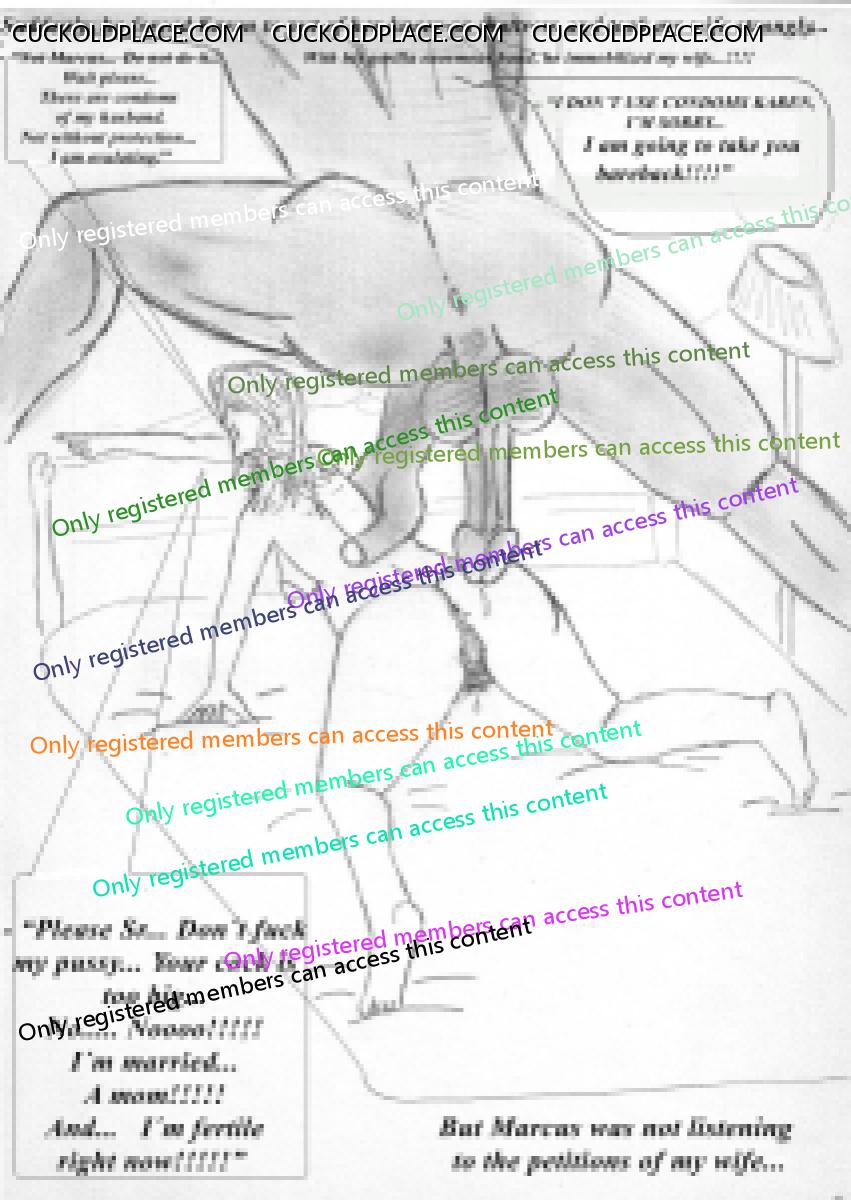 CUCKOLDPLACE.COM CUCKOLDPLACE.COM CUCKOLDPLACE.COM
Marcus... Do not do
With his immobilized my wife...!!!!
Wait please...
There are condoms
of my husband.
Not without protection...
I am ovulating."
"I DON'T USE CONDOMS KAREN,
I'M SORRY...
I am going to take you
bareback!!!!"
Only registered members can access this content
Only registered members can access this co
Only registered members can access this content
Only registered members can access this content
Only registered members can access this content
Only registered members can access this content
Only registered members can access this content
Only registered members can access this content
Only registered members can access this content
Only registered members can access this content
Only registered members can access this content
Only registered members can access this content
- "Please Sr... Don't fuck
my pussy... Your cock is
too big...
No..... Noooo!!!!!
I'm married...
A mom!!!!!
And... I'm fertile
right now!!!!!"
But Marcus was not listening
to the petitions of my wife...